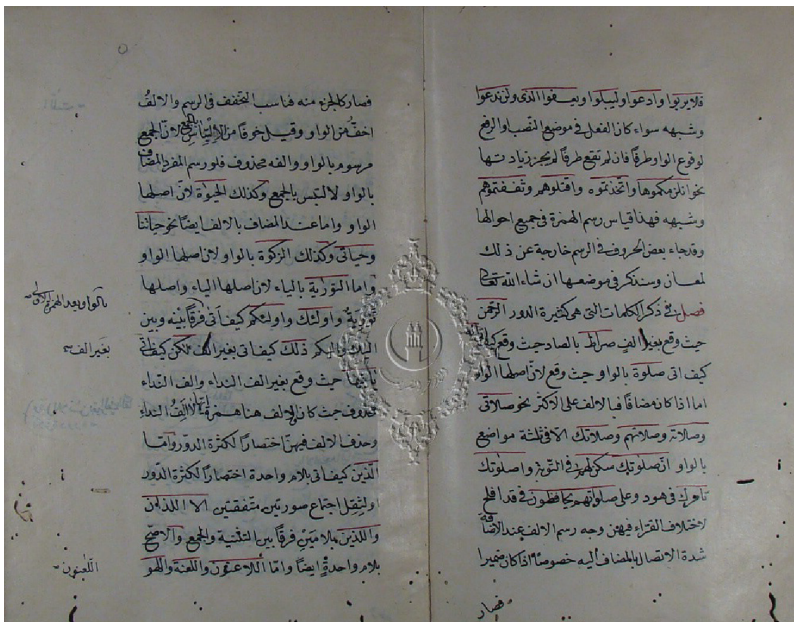 فلا يربوا وادعوا وليبلوا ويعفوا الذى ولن ندعوا
وشبهه سواء كان الفعل فى موضع النصب او الرفع
لوقوع الواو طرفا فان لم تقع طرفا لم يجز زيادتها
نحو انلزمكموها واتخذتموه واقتلوهم وثقفتموهم
وشبهه فهذا قياس رسم الهمزة فى جميع احوالها
وقد جاء بعض الحروف فى الرسم خارجة عن ذلك
لمعان وسنذكر فى موضعها ان شاء الله تعالى
فصل فى ذكر الكلمات التى هى كثيرة الدور الرحمن
حيث وقع بغير الف صراط بالصاد حيث وقع
كيف اتى صلوة بالواو حيث وقع لان اصلها الواو
اما اذا كان مضافا فبالالف على الاكثر نحو صلاتى
وصلاته وصلاتهم وصلاتك الا فى ثلثة مواضع
بالواو ان صلوتك سكن لهم فى التوبة واصلوتك
تامرك فى هود وعلى صلواتهم يحافظون فى قد افلح
لاختلاف القراء فيهن وجه رسم الالف عند الاضافة
شدة الاتصال بالمضاف اليه خصوصا اذا كان ضميرا
فصار
فصار كالجزء منه فناسب التخفف فى الرسم والالف
اخف من الواو وقيل خوفا من الالتباس بالجمع لان الجمع
مرسوم بالواو والفه محذوف فلو رسم المفرد المضاف
بالواو لالتبس بالجمع وكذلك الحيوة لان اصلها
الواو واما عند المضاف بالالف ايضا نحو حياتنا
وحياتى وكذلك الزكوة بالواو لان اصلها الواو
واما التورية بالياء لان اصلها الياء واصلها
تورية واولئك واولئكم كيف اتى فرقا بينه وبين
اليك واليكم ذلك كيف اتى بغير الف لكن كيف اتى
يا ايها حيث وقع بغير الف النداء والف النداء
محذوف حيث كان الالف هنا همزة لان الالف النداء
وحذف الالف فيهن اختصارا لكثرة الدور واما
الذين كيف اتى بلام واحدة اختصارا لكثرة الدور
او لثقل اجتماع صورتين متفقتين الا اللذان
واللذين بلامين فرقا بين التثنية والجمع والاصح
بلام واحدة ايضا واما اللاعنون واللعنة واللهو
بالواو بعد الهمزة الاولى
بغير الف
اللعنون